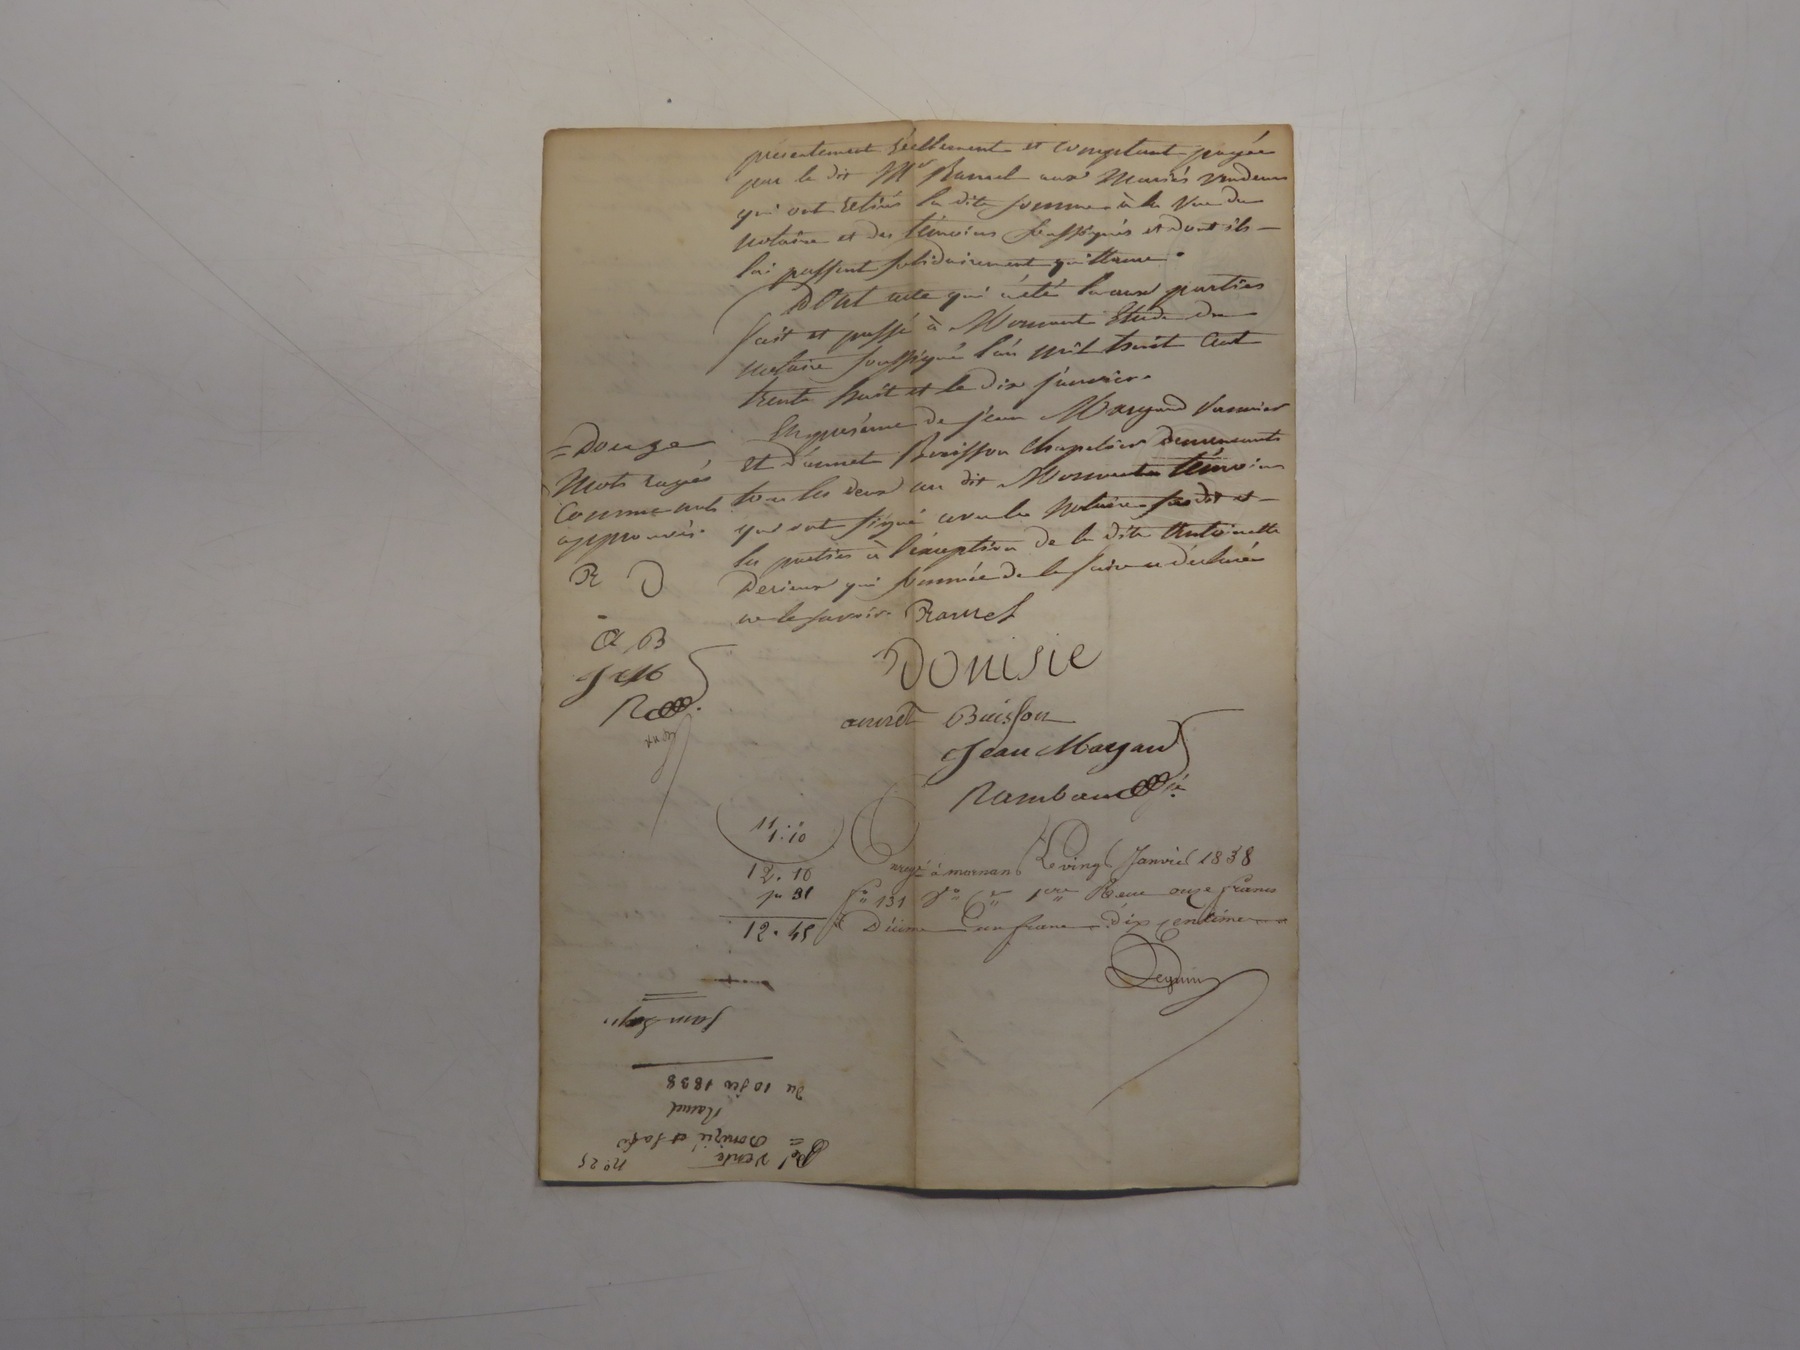 présentement réellement et comptant payée
par le dit Mr Ramel aux Mariés vendeurs
qui ont retiré la dite somme à la vue du
notaire et des témoins soussignés et dont ils
lui passent solidairement quittance.
Dont acte qui a été lu aux parties
fait et passé à Mornant Etude du
notaire soussigné l'an mil huit cent
trente huit et le dix janvier.
En présence de jean Margand
et d'annet Buisson Chapelier demeurants
tous les deux au dit Mornant témoins
qui ont signé avec le Notaire et
les parties à l'exception de la dite Antoinette
qui sommée de le faire a déclaré
ne le savoir. Ramel
= Douze
Mots rayés
comme nuls
approuvés.
R D
a B
J M
R
Donisie
annet Buisson
Jean Margand
Rambaud
11
1.10
12.10
35
12.45
Enregé à mornant Le vingt Janvier 1838
fo 131 Vo Cse 1ere Reçu onze francs
Décime un franc dix centimes
Seguin
no. 25
Vente
Donizie et
Ramel
du 10 jer 1838